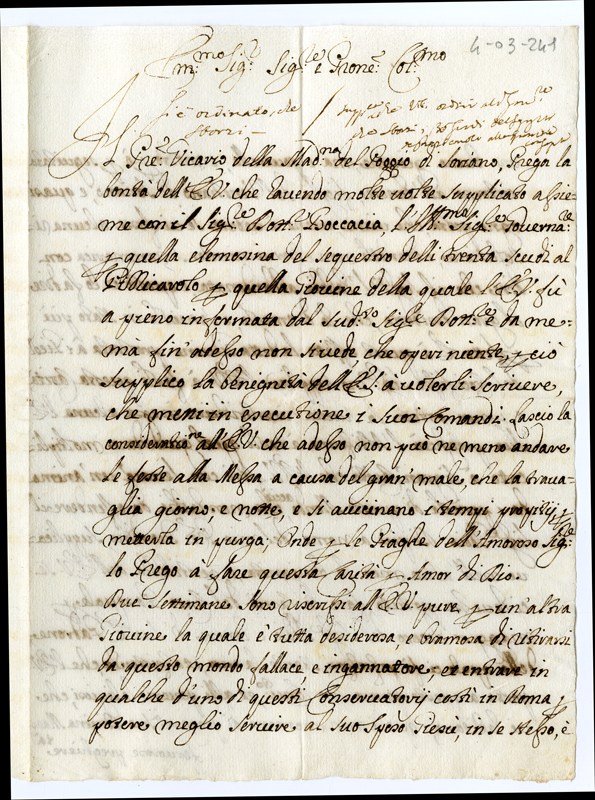 4-03-241
Em.mo Sig.r Sig.re e Prone Col.mo
Si è ordinato, che
sborzi —
Il Pre. Vicario della Mad.na del Poggio di Soriano, Prega la
bontà dell'E.V. che havendo molte volte supplicato assie=
me con il Sig.re Bart. Boccacia, l'Ill.mo Sig.re Governa.re
p quella elemosina del sequestro delli trenta scudi al
Pellicarolo p quella Giovine della quale l'E.V. fù
a pieno informata dal sud.ro Sig.re Bart.eo e da me=
mà sin'adesso non si vede che operi niente, p ciò
supplico la benignità dell'E.S. a volerli scrivere,
che metti in esecutione i suoi Comandi. Lascio la
consideratio.ne all'E.V. che adesso non può ne meno andare
le feste alla Messa a causa del gran' male, che la trava=
glia giorno, e notte, e si avicinano i tempi propitij p
metterla in purga; Onde p le Piaghe dell'Amoroso Sig.re
lo Prego a fare questa Carità p Amor' di Dio.
Due Settimane sono riscrissi all'E.V. pure p un'altra
Giovine la quale è tutta desiderosa, e bramosa di ritirarsi
da questo mondo fallace, e ingannatore; et entrare in
qualche d'uno di questi Conservatorij costì in Roma p
potere meglio servire al suo Sposo Giesù, in se stesso, è